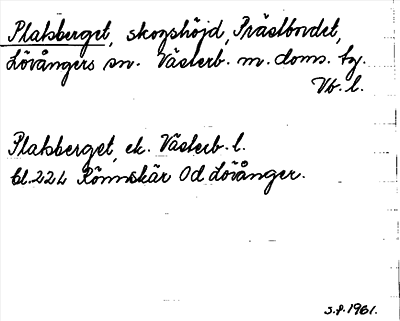 Plakberget, skogshöjd, Prästbordet,
Lövångers sn. Västerb. m. doms. tg.
Vb. l.
Plakberget, ek. Västerb. l.
bl. 224 Rönnskär Od Lövånger.
S.f. 1961.